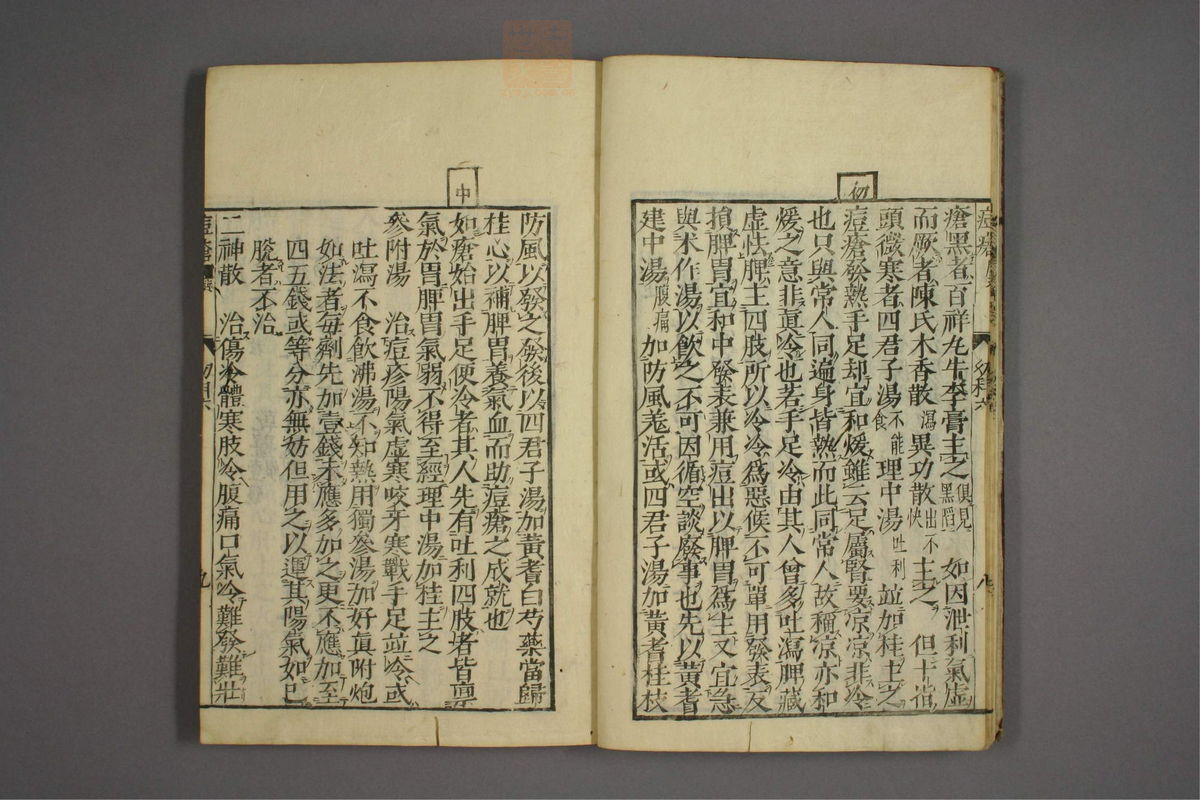 初
瘡黑者百祥丸牛李膏主之俱見黑䧟　如因泄利氣虛
而厥者陳氏木香散瀉異功散出不快主之　但十指
頭微寒者四君子湯不能食理中湯吐利並加桂主之
痘瘡發熱手足却宜和煖雖云足屬腎要凉凉非冷
也只與常人同遍身皆熱而此同常人故稱凉亦和
煖之意非眞冷也若手足冷由其人曾多吐瀉脾藏
虛怯脾主四肢所以冷冷爲惡候不可單用發表反
損脾胃宜和中發表兼用痘出以脾胃爲主又宜急
與木作湯以飮之不可因循空談廢事也先以黃耆
建中湯腹痛加防風羗活或四君子湯加黃耆桂枝
八
中
防風以發之發後以四君子湯加黃耆白芍藥當歸
桂心以補脾胃養氣血而助痘瘡之成就也
如瘡始出手足便冷者其人先有吐利四肢者皆稟
氣於胃脾胃氣弱不得至經理中湯加桂主之
參附湯　治痘疹陽氣虛寒咬牙寒戰手足並冷或
吐瀉不食飮沸湯不知熱用獨參湯加好眞附炮
如法者每劑先加壹錢未應多加之更不應加至
四五錢或等分亦無妨但用之以運其陽氣如已
脫者不治
二神散　治傷冷體寒肢冷腹痛口氣冷難發難壯
痘瘡
九